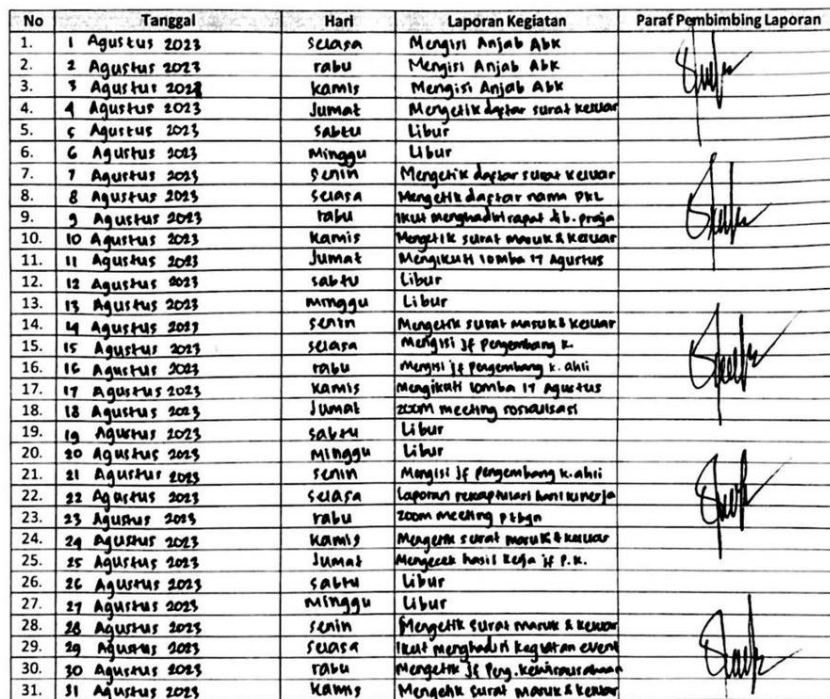 No Tanggal Hari Laporan Kegiatan Paraf Pembimbing Laporan
1. 1 Agustus 2023 Selasa Mengisi Anjab Abk
2. 2 Agustus 2023 rabu Mengisi Anjab Abk
3. 3 Agustus 2023 Kamis Mengisi Anjab Abk
4. 4 Agustus 2023 Jumat Mengetik daftar surat keluar
5. 5 Agustus 2023 Sabtu Libur
6. 6 Agustus 2023 Minggu Libur
7. 7 Agustus 2023 Senin Mengetik daftar surat keluar
8. 8 Agustus 2023 Selasa Mengetik daftar nama PKL
9. 9 Agustus 2023 rabu Ikut menghadiri rapat di b. praja
10. 10 Agustus 2023 Kamis Mengetik surat masuk & keluar
11. 11 Agustus 2023 Jumat Mengikuti lomba 17 Agustus
12. 12 Agustus 2023 sabtu Libur
13. 13 Agustus 2023 minggu Libur
14. 14 Agustus 2023 senin Mengetik surat masuk & keluar
15. 15 Agustus 2023 selasa Mengisi jf pengembang k.
16. 16 Agustus 2023 rabu mengisi jf pengembang k. ahli
17. 17 Agustus 2023 Kamis Mengikuti lomba 17 Agustus
18. 18 Agustus 2023 Jumat zoom meeting sosialisasi
19. 19 Agustus 2023 sabtu Libur
20. 20 Agustus 2023 minggu Libur
21. 21 Agustus 2023 senin Mengisi jf pengembang k. ahli
22. 22 Agustus 2023 selasa Laporan rekaptulasi hasil kinerja
23. 23 Agustus 2023 rabu zoom meeting
24. 24 Agustus 2023 Kamis Mengetik surat masuk & keluar
25. 25 Agustus 2023 Jumat Mengecek hasil kerja jf P.K.
26. 26 Agustus 2023 sabtu Libur
27. 27 Agustus 2023 minggu Libur
28. 28 Agustus 2023 senin Mengetik surat masuk & keluar
29. 29 Agustus 2023 selasa Ikut menghadiri kegiatan event
30. 30 Agustus 2023 rabu Mengetik jf Peng. kewirausahaan
31. 31 Agustus 2023 Kamis Mengetik surat masuk & keluar